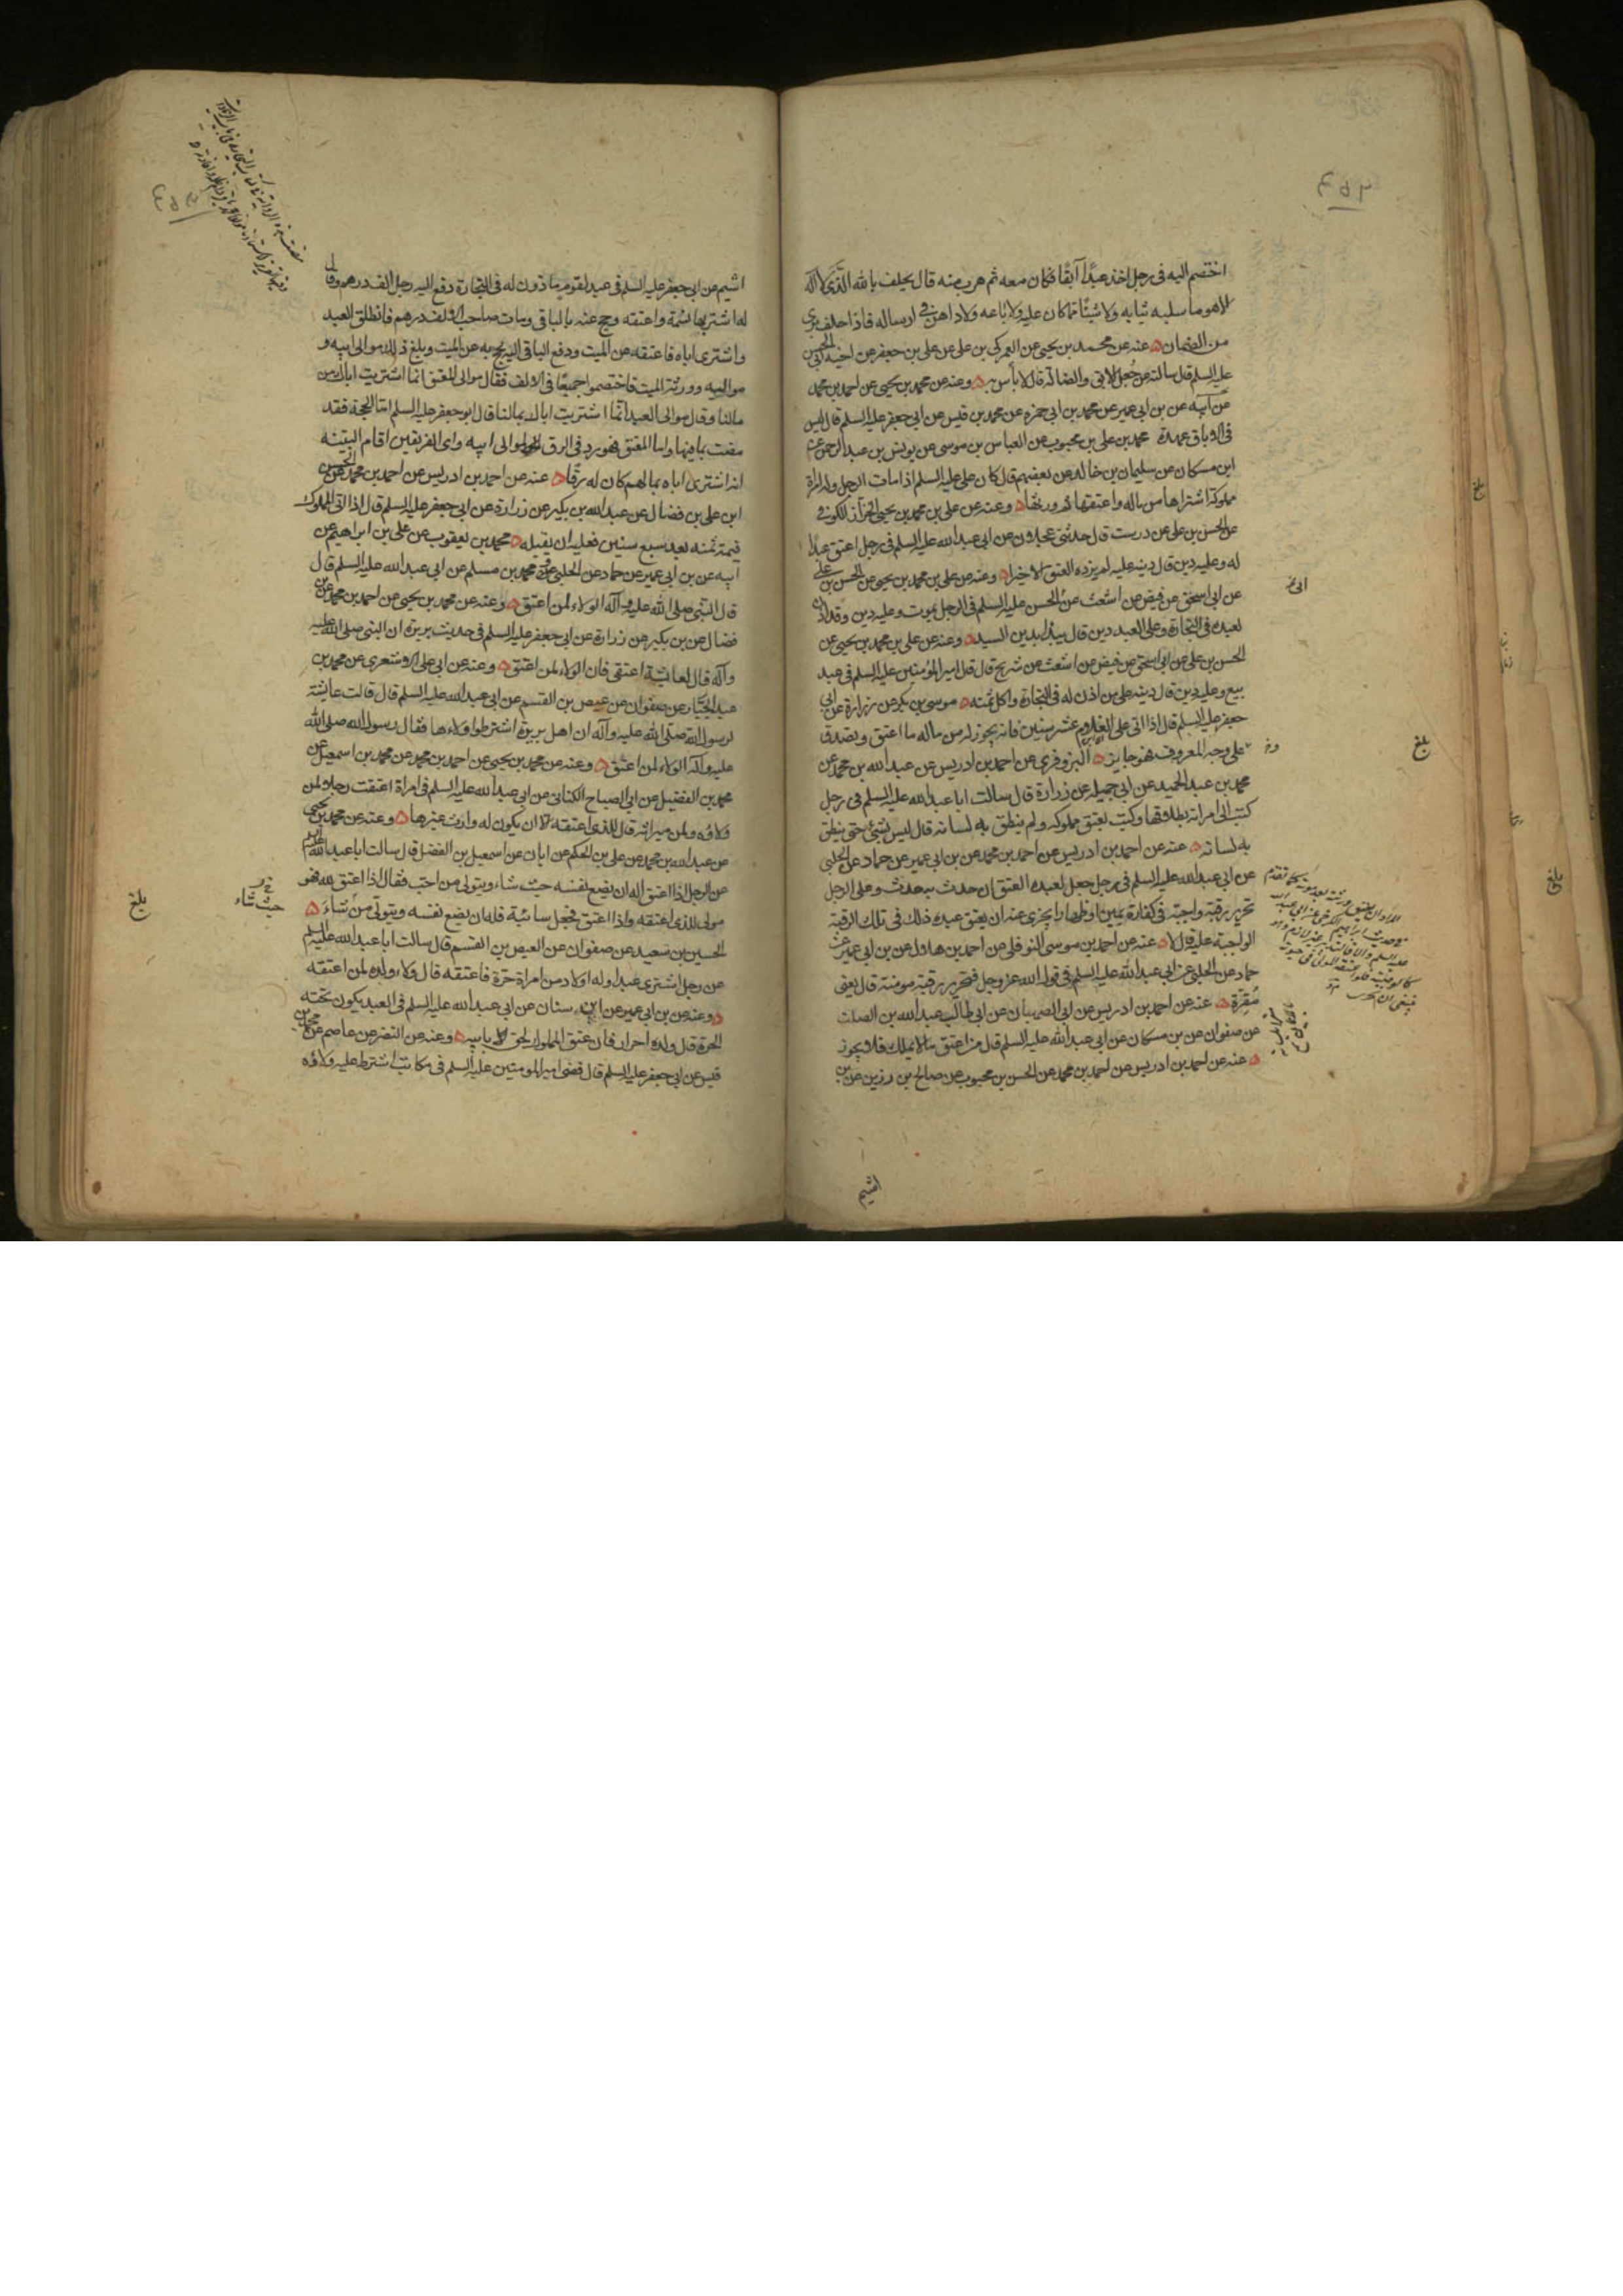 اختصم اليه فى رجل اخذ عبدًا آبقًا فكان معه ثم هرب منه قال يحلف بالله الذى لا اله
الا هو ما سلبه ثيابه ولا شيئًا مما كان عليه ولا باعه ولا داهن فى ارساله فاذا حلف برئ
من الضمان عنه عن محمد بن يحيى عن العمركى بن على عن على بن جعفر عن اخيه ابى الحسن
عليه السلم قال سالته عن جعل الابق والضالة قال لا بأس به وعنه عن محمد بن يحيى عن احمد بن محمد
عن ابيه عن بن ابى عمير عن محمد بن ابى حمزه عن محمد بن قيس عن ابى جعفر عليه السلم قال ليس
فى الاباق عهدة محمد بن على بن محبوب عن العباس بن موسى عن يونس بن عبد الرحمن عن
ابن مسكان عن سليمان بن خالد عن بعضهم قال كان على عليه السلم اذا مات الرجل وله امراة
مملوكة اشتراها من ماله واعتقها ثم ورثها وعنه عن على بن محمد بن يحيى الخزاز الكوفى
عن الحسن بن على عن درست قال حدثنى عجلان عن ابى عبد الله عليه السلم فى رجل اعتق عبدًا
له وعليه دين قال دينه عليه لم يزده العتق الا خيرا وعنه عن على بن محمد بن يحيى عن الحسن بن على
عن ابى اسحق عن فيض عن اشعث عن الحسن عليه السلم فى الرجل يموت وعليه دين وقد اذن
لعبده فى التجارة وعلى العبد دين قال يبدأ بدين السيد وعنه عن على بن محمد بن يحيى عن
الحسن بن على عن ابى اسحق عن فيض عن اشعث عن شريح قال قال امير المؤمنين عليه السلم فى عبد
بيع وعليه دين قال دينه على من اذن له فى التجارة واكل ثمنه موسى بن بكر عن زرارة عن ابى
جعفر عليه السلم قال اذا اتى على الغلام عشر سنين فانه يجوز له من ماله ما اعتق وتصدق
على وجه المعروف فهو جايز البزوفرى عن احمد بن ادريس عن عبد الله بن محمد عن
محمد بن عبد الحميد عن ابى جميله عن زرارة قال سالت ابا عبد الله عليه السلم فى رجل
كتب الى امراته بطلاقها وكتب بعتق مملوكه ولم ينطق به لسانه قال ليس بشئ حتى ينطق
به لسانه عنه عن احمد بن ادريس عن احمد بن محمد عن بن ابى عمير عن حماد عن الحلبى
عن ابى عبد الله عليه السلم فى رجل جعل لعبده العتق ان حدث به حدث وعلى الرجل
تحرير رقبة واجبة فى كفارة يمين او ظهار ايجزى عنه ان يعتق عبده ذلك فى تلك الرقبة
الواجبة عليه قال لا عنه عن احمد بن موسى النوفلى عن احمد بن هلال عن بن ابى عمير عن
حماد عن الحلبى عن ابى عبد الله عليه السلم فى قول الله عز وجل فتحرير رقبة مومنة قال يعنى
مُقرّة عنه عن احمد بن ادريس عن ابى الصهبان عن ابى طالب عبد الله بن الصلت
عن صفوان عن بن مسكان عن ابى عبد الله عليه السلم قال من اعتق ما لا يملك فلا يجوز
عنه عن احمد بن ادريس عن احمد بن محمد عن الحسن بن محبوب عن صالح بن رزين عن بن
اشيم
بلغ
اشيم عن ابى جعفر عليه السلم فى عبد لقوم ماذون له فى التجارة دفع اليه رجل الف درهم وقال
له اشتر بها نسمة واعتقه وحج عنه بالباقى ومات صاحب الالف درهم فانطلق العبد
واشترى اباه فاعتقه عن الميت ودفع الباقى اليه يحج به عن الميت وبلغ ذلك موالى ابيه و
مواليه وورثة الميت فاختصموا جميعًا فى الالف فقال موالى المعتق انما اشتريت اباك من
مالنا وقال موالى العبد انما اشتريت اباك بمالنا قال ابو جعفر عليه السلم اما الحجة فقد
مضت بما فيها واما المعتق فهو رد فى الرق لموالى ابيه واى الفريقين اقام البينة
انه اشترى اباه بمالهم كان له رقًا عنه عن احمد بن ادريس عن احمد بن محمد عن الحسن
ابن على بن فضال عن عبد الله بن بكير عن زرارة عن ابى جعفر عليه السلم قال اذا اتى المملوك
قيمة ثمنه بعد سبع سنين فعليه ان يقبله محمد بن يعقوب عن على بن ابراهيم عن
ابيه عن بن ابى عمير عن حماد عن الحلبى ومحمد بن مسلم عن ابى عبد الله عليه السلم قال
قال النبى صلى الله عليه وآله الولاء لمن اعتق وعنه عن محمد بن يحيى عن احمد بن محمد عن
فضال عن بن بكير عن زرارة عن ابى جعفر عليه السلم فى حديث بريرة ان النبى صلى الله عليه
وآله قال لعايشة اعتقى فان الولاء لمن اعتق وعنه عن ابى على الاشعرى عن محمد بن
عبد الجبار عن صفوان عن عيص بن القسم عن ابى عبد الله عليه السلم قال قالت عايشة
لرسول الله صلى الله عليه وآله ان اهل بريرة اشترطوا ولاءها فقال رسول الله صلى الله
عليه وآله الولاء لمن اعتق وعنه عن محمد بن يحيى عن احمد بن محمد عن محمد بن اسمعيل عن
محمد بن الفضيل عن ابى الصباح الكنانى عن ابى عبد الله عليه السلم فى امراة اعتقت رجلا لمن
ولاؤه ولمن ميراثه قال للذى اعتقه الا ان يكون له وارث غيرها وعنه عن محمد بن يحيى
عن عبد الله بن محمد عن على بن الحكم عن ابان عن اسمعيل بن الفضل قال سالت ابا عبد الله عليه السلم
عن الرجل اذا اعتق اله ان يضع نفسه حيث شاء ويتولى من احب فقال اذا اعتق لله فهو
مولى للذى اعتقه واذا اعتق فجعل سائبة فله ان يضع نفسه ويتولى من شاء
حيث شاء
بلغ
الحسين بن سعيد عن صفوان عن العيص بن القسم قال سالت ابا عبد الله عليه السلم
عن رجل اشترى عبدا وله اولاد من امراة حرة فاعتقه قال ولاء ولده لمن اعتقه
وعنه عن بن ابى عمير عن ابن سنان عن ابى عبد الله عليه السلم فى العبد يكون تحته
الحرة قال ولده احرار فان عتق المملوك لحق بابيه وعنه عن النضر عن عاصم عن محمد بن
قيس عن ابى جعفر عليه السلم قال قضى امير المومنين عليه السلم فى مكاتب اشترط عليه ولاؤه